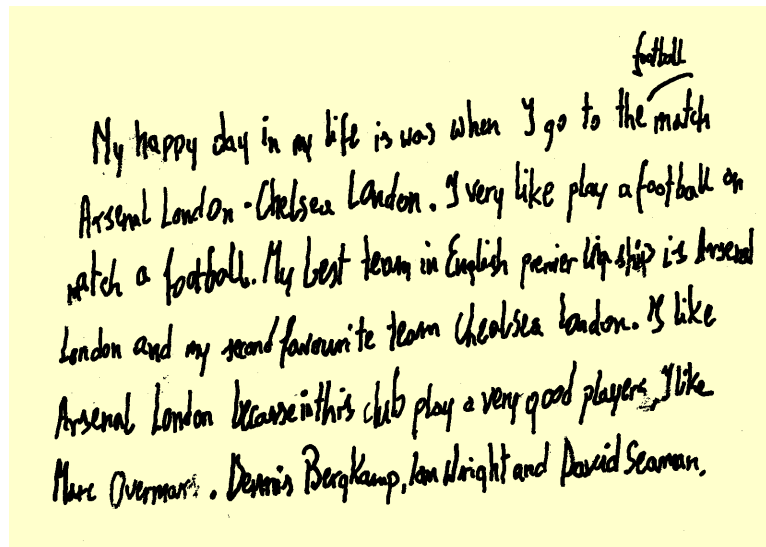 football
My happy day in my life is was when I go to the match
Arsenal London - Chelsea London. I very like play a football on
match a football. My best team in English premier is Arsenal
London and my second favourite team Chealsea London. I like
Arsenal London becasse in this club play a very good players, I like
Marc Overmars. Dennis Bergkamp, Ian Wright and David Seaman.